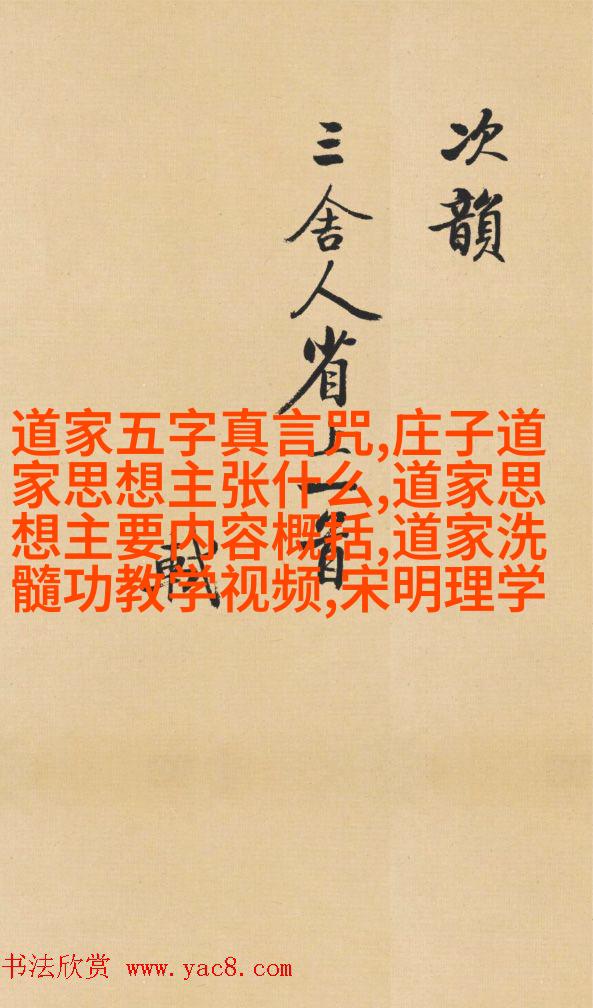 次韻
三舍人省上一首
軾
道家五字真言咒,庄子道
家思想主张什么,道家思
想主要内容概括,道家洗
髓功教学视频,宋明理学
书法欣赏 www.yac8.com